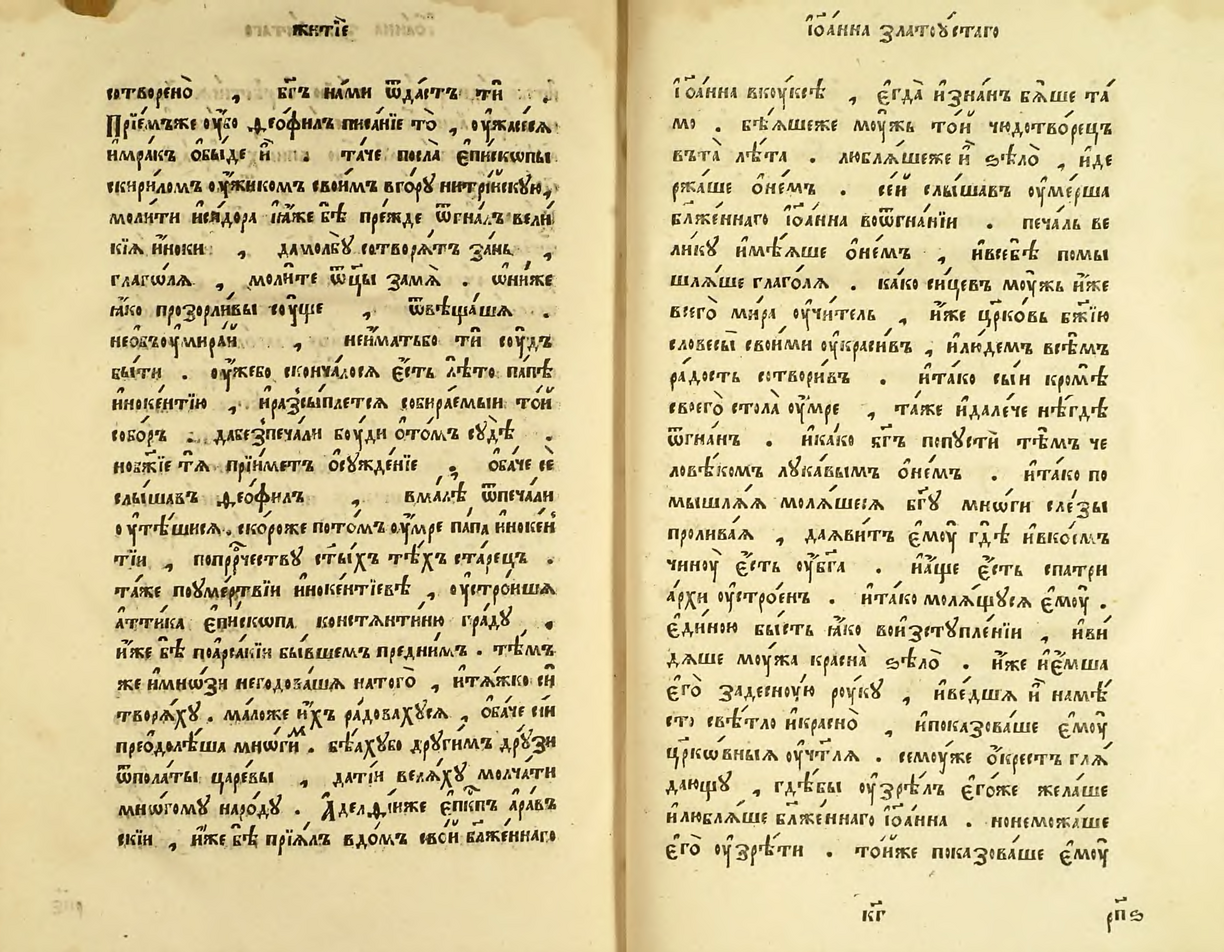 житїе
сотворено̀ , бг҃ъ нами ѿда́стъ ти .
Прїе́мъже ᲂу҆́бо ѳео́филъ писа́нїе то̀ , ᲂу҆жасе́сѧ
и҆мра́къ ѻ҆бы́де и҆̀ . та́че посла̀ є҆пи́скѡпы
скири́ломъ ᲂу҆́жикомъ свои́мъ вго́рꙋ нитрі́йскꙋю,
моли́ти и҆си́дора ꙗ҆́же бѣ̀ пре́жде ѿгна́лъ вели́
кїѧ и҆́ноки , дамолбꙋ̀ сотворѧ́тъ за́нь ,
глаго́лѧ , моли́те ѿц҃ы замѧ̀ . ѡ҆ни́же
ꙗ҆́ко прозорли́вы сꙋ́ще , ѿвѣща́шѧ .
необъꙋмира́й , неи́матьбо тѝ сꙋ́дъ
бы́ти . ᲂу҆́жебо сконча́лосѧ є҆́сть лѣ́то па́пѣ
и҆ноке́нтїю , и҆разсы́плетсѧ собира́емыи то́й
собо́ръ . дабезпеча́ли бꙋ́ди ѻ҆то́мъ сꙋдѣ̀ .
нобж҃їе тѧ̀ прїи́метъ ѻ҆сꙋжде́нїе . ѻ҆ба́че сѐ
слы́шавъ ѳео́филъ , вма́лѣ ѿпеча́ли
ᲂу҆тѣ́шисѧ . ско́роже пото́мъ ᲂу҆́мре па́па и҆ноке́н
тїи , попрⷪ҇рчествꙋ ст҃ы́хъ тѣ́хъ ста́рецъ .
та́же поᲂу҆ме́ртвїи и҆ноке́нтїевѣ , ᲂу҆стро́ишѧ
а҆́ттика є҆пи́скѡпа константи́ню гра́дꙋ .
и҆́же бѣ̀ поарса́кїи бы́вшемъ пре́днимъ . тѣ́мъ
же и҆мно́зи негодова́шѧ натого̀ , и҆тѧ́жко си
творѧ́хꙋ . ма́ложе и҆́хъ ра́довахꙋсѧ , ѻ҆ба́че сїи
преодолѣ́ша мнѡ́гиⷨ . бѣ́ахꙋбо дрꙋги́мъ дрꙋ́зи
ѿпола́ты царе́вы , дати́и велѧ́хꙋ молча́ти
мнѡ́гомꙋ наро́дꙋ . А҆делѳі́иже є҆пⷭ҇кпъ а҆ра́в
скїи , и҆́же бѣ̀ прїѧ́лъ вдо́мъ сво́й бл҃же́ннаго
і҆ѡа́нна златоꙋ́стаго
і҆ѡа́нна вкоукꙋ́сѣ , є҆гда̀ и҆згна́нъ бѧ́ше та́
мо . бѣ́ѧшеже мꙋ́жь то́й чюдотво́рецъ
въта̀ лѣ́та . люблѧ́шеже и҆̀ ѕѣло̀ , и҆де
ржа́ше ѻ҆не́мъ . се́й слы́шавъ ᲂу҆ме́рша
бл҃же́ннаго і҆ѡа́нна воѿгна́нїи . печа́ль ве
ли́кꙋ и҆мѣ́ѧше ѻ҆не́мъ , и҆всебѣ̀ помы
шлѧ́ше глаго́лѧ . ка́ко си́цевъ мꙋ́жь и҆́же
всего̀ ми́ра ᲂу҆чи́тель , и҆́же цр҃ковь бж҃їю
словесы̀ свои́ми ᲂу҆краси́въ , и҆лю́демъ всѣ́мъ
ра́дость сотвори́въ . и҆та́ко сы́и кро́мѣ
своего̀ стола̀ ᲂу҆́мре , та́же и҆дале́че нѣ́гдѣ
ѿгна́нъ . и҆ка́ко бг҃ъ попꙋстѝ тѣ́мъ че
ловѣ́комъ лꙋка́вымъ ѻ҆не́мъ . и҆та́ко по
мышлѧ́ѧ молѧ́шесѧ бг҃ꙋ мнѡ́ги сле́зы
пролива́ѧ , даꙗ҆ви́тъ є҆мꙋ̀ гдѣ̀ и҆вко́емъ
чинꙋ̀ є҆́сть ᲂу҆бг҃а . и҆а҆́ще є҆́сть спатри
а́рхи ᲂу҆стро́енъ . и҆та́ко молѧ́щꙋсѧ є҆мꙋ̀ .
є҆ди́ною бы́сть ꙗ҆́ко вои҆зстꙋпле́нїи , и҆ви́
дѧше мꙋ́жа красна̀ ѕѣло̀ . и҆́же и҆е҆́мша
є҆го̀ задеснꙋ́ю рꙋ́кꙋ , и҆ве́дшѧ и҆̀ намѣ́
сто свѣ́тло и҆кра́сно , и҆показова́ше є҆мꙋ̀
цр҃ко́вныѧ ᲂу҆чт҃лѧ . семꙋ́же ѻ҆́крестъ глѧ́
дающꙋ , гдѣ́бы ᲂу҆зрѣ́лъ є҆го́же жела́ше
и҆люблѧ́ше бл҃же́ннаго і҆ѡа́нна . нонеможа́ше
є҆го̀ ᲂу҆зрѣ́ти . то́йже показова́ше є҆мꙋ̀
кг҃ рп҃ѕ